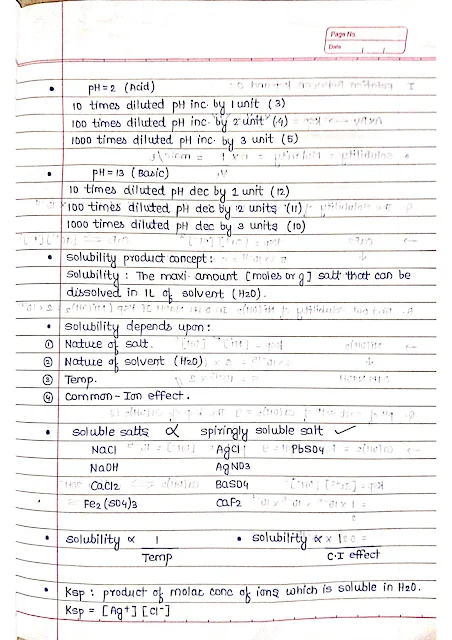 Page No.
Date
• pH = 2 (Acid)
10 times diluted pH inc. by 1 unit (3)
100 times diluted pH inc. by 2 unit (4)
1000 times diluted pH inc. by 3 unit (5)
• pH = 13 (Basic)
10 times diluted pH dec by 1 unit (12)
100 times diluted pH dec by 2 units (11)
1000 times diluted pH dec by 3 units (10)
• solubility product concept:
solubility : The maxi. amount [moles or g] salt that can be
dissolved in 1L of solvent (H2O).
• solubility depends upon:
① Nature of salt.
② Nature of solvent (H2O)
③ Temp.
④ Common-Ion effect.
• soluble salts ∝ spiringly soluble salt ✓
NaCl AgCl PbSO4
NaOH AgNO3
CaCl2 BaSO4
Fe2(SO4)3 CaF2
• solubility ∝ 1/Temp • solubility ∝ 1/C.I effect
• Ksp : product of molar conc of ions which is soluble in H2O.
Ksp = [Ag+] [Cl-]